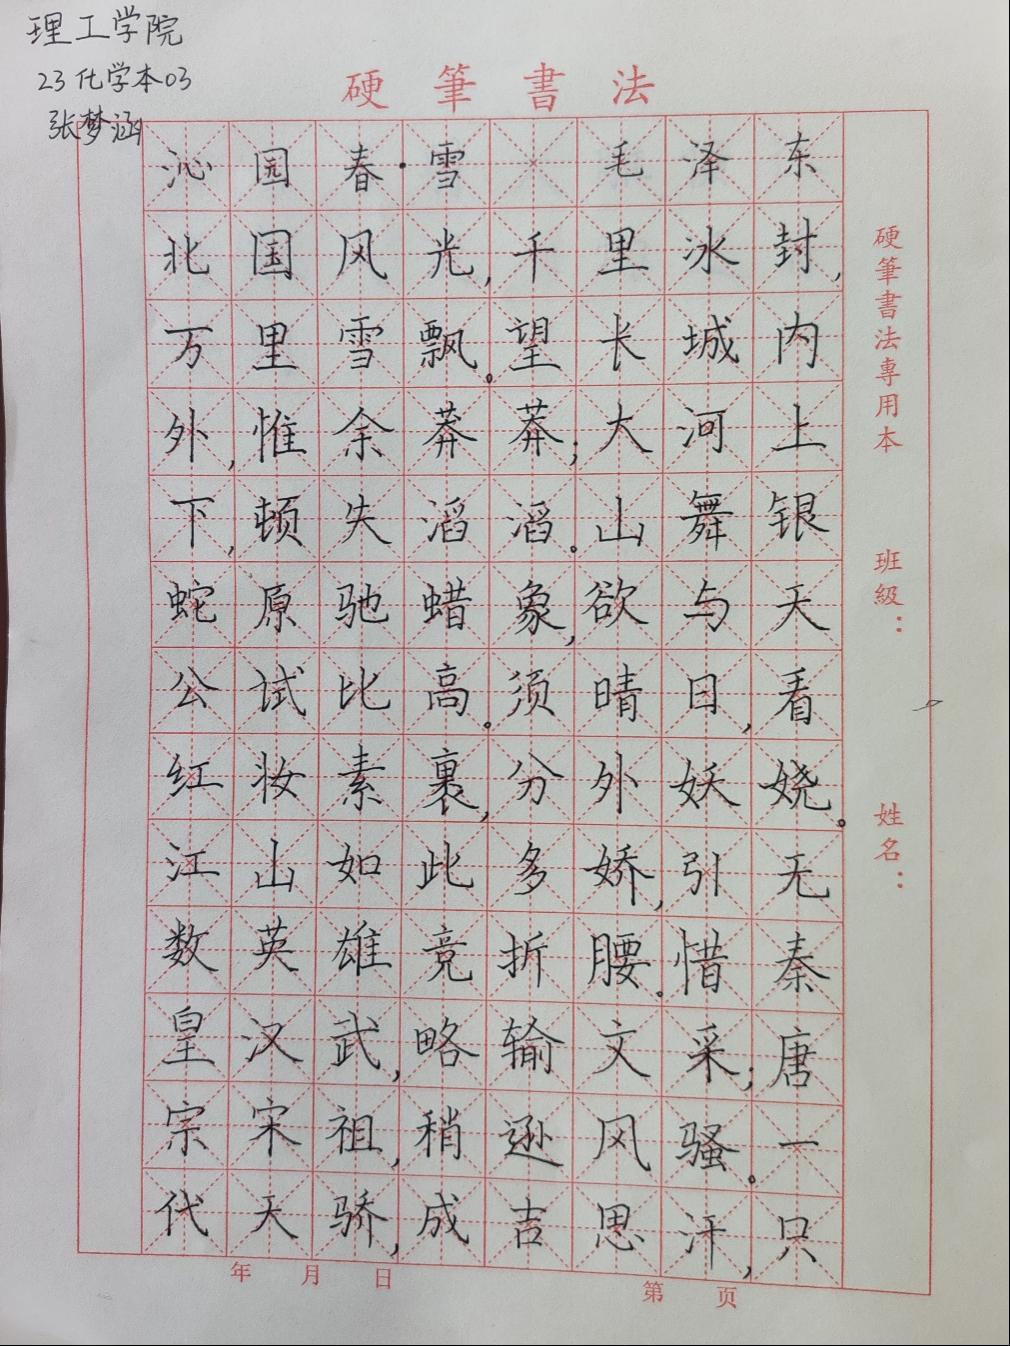 理工学院
23化学本03
张梦涵
硬筆書法
沁园春·雪 毛泽东
北国风光,千里冰封,
万里雪飘。望长城内
外,惟余莽莽;大河上
下,顿失滔滔。山舞银
蛇原驰蜡象,欲与天
公试比高。须晴日,看
红妆素裹,分外妖娆。
江山如此多娇,引无
数英雄竞折腰。惜秦
皇汉武,略输文采;唐
宗宋祖,稍逊风骚。一
代天骄,成吉思汗,只
年 月 日
第 页
硬筆書法專用本
班級：
姓名：